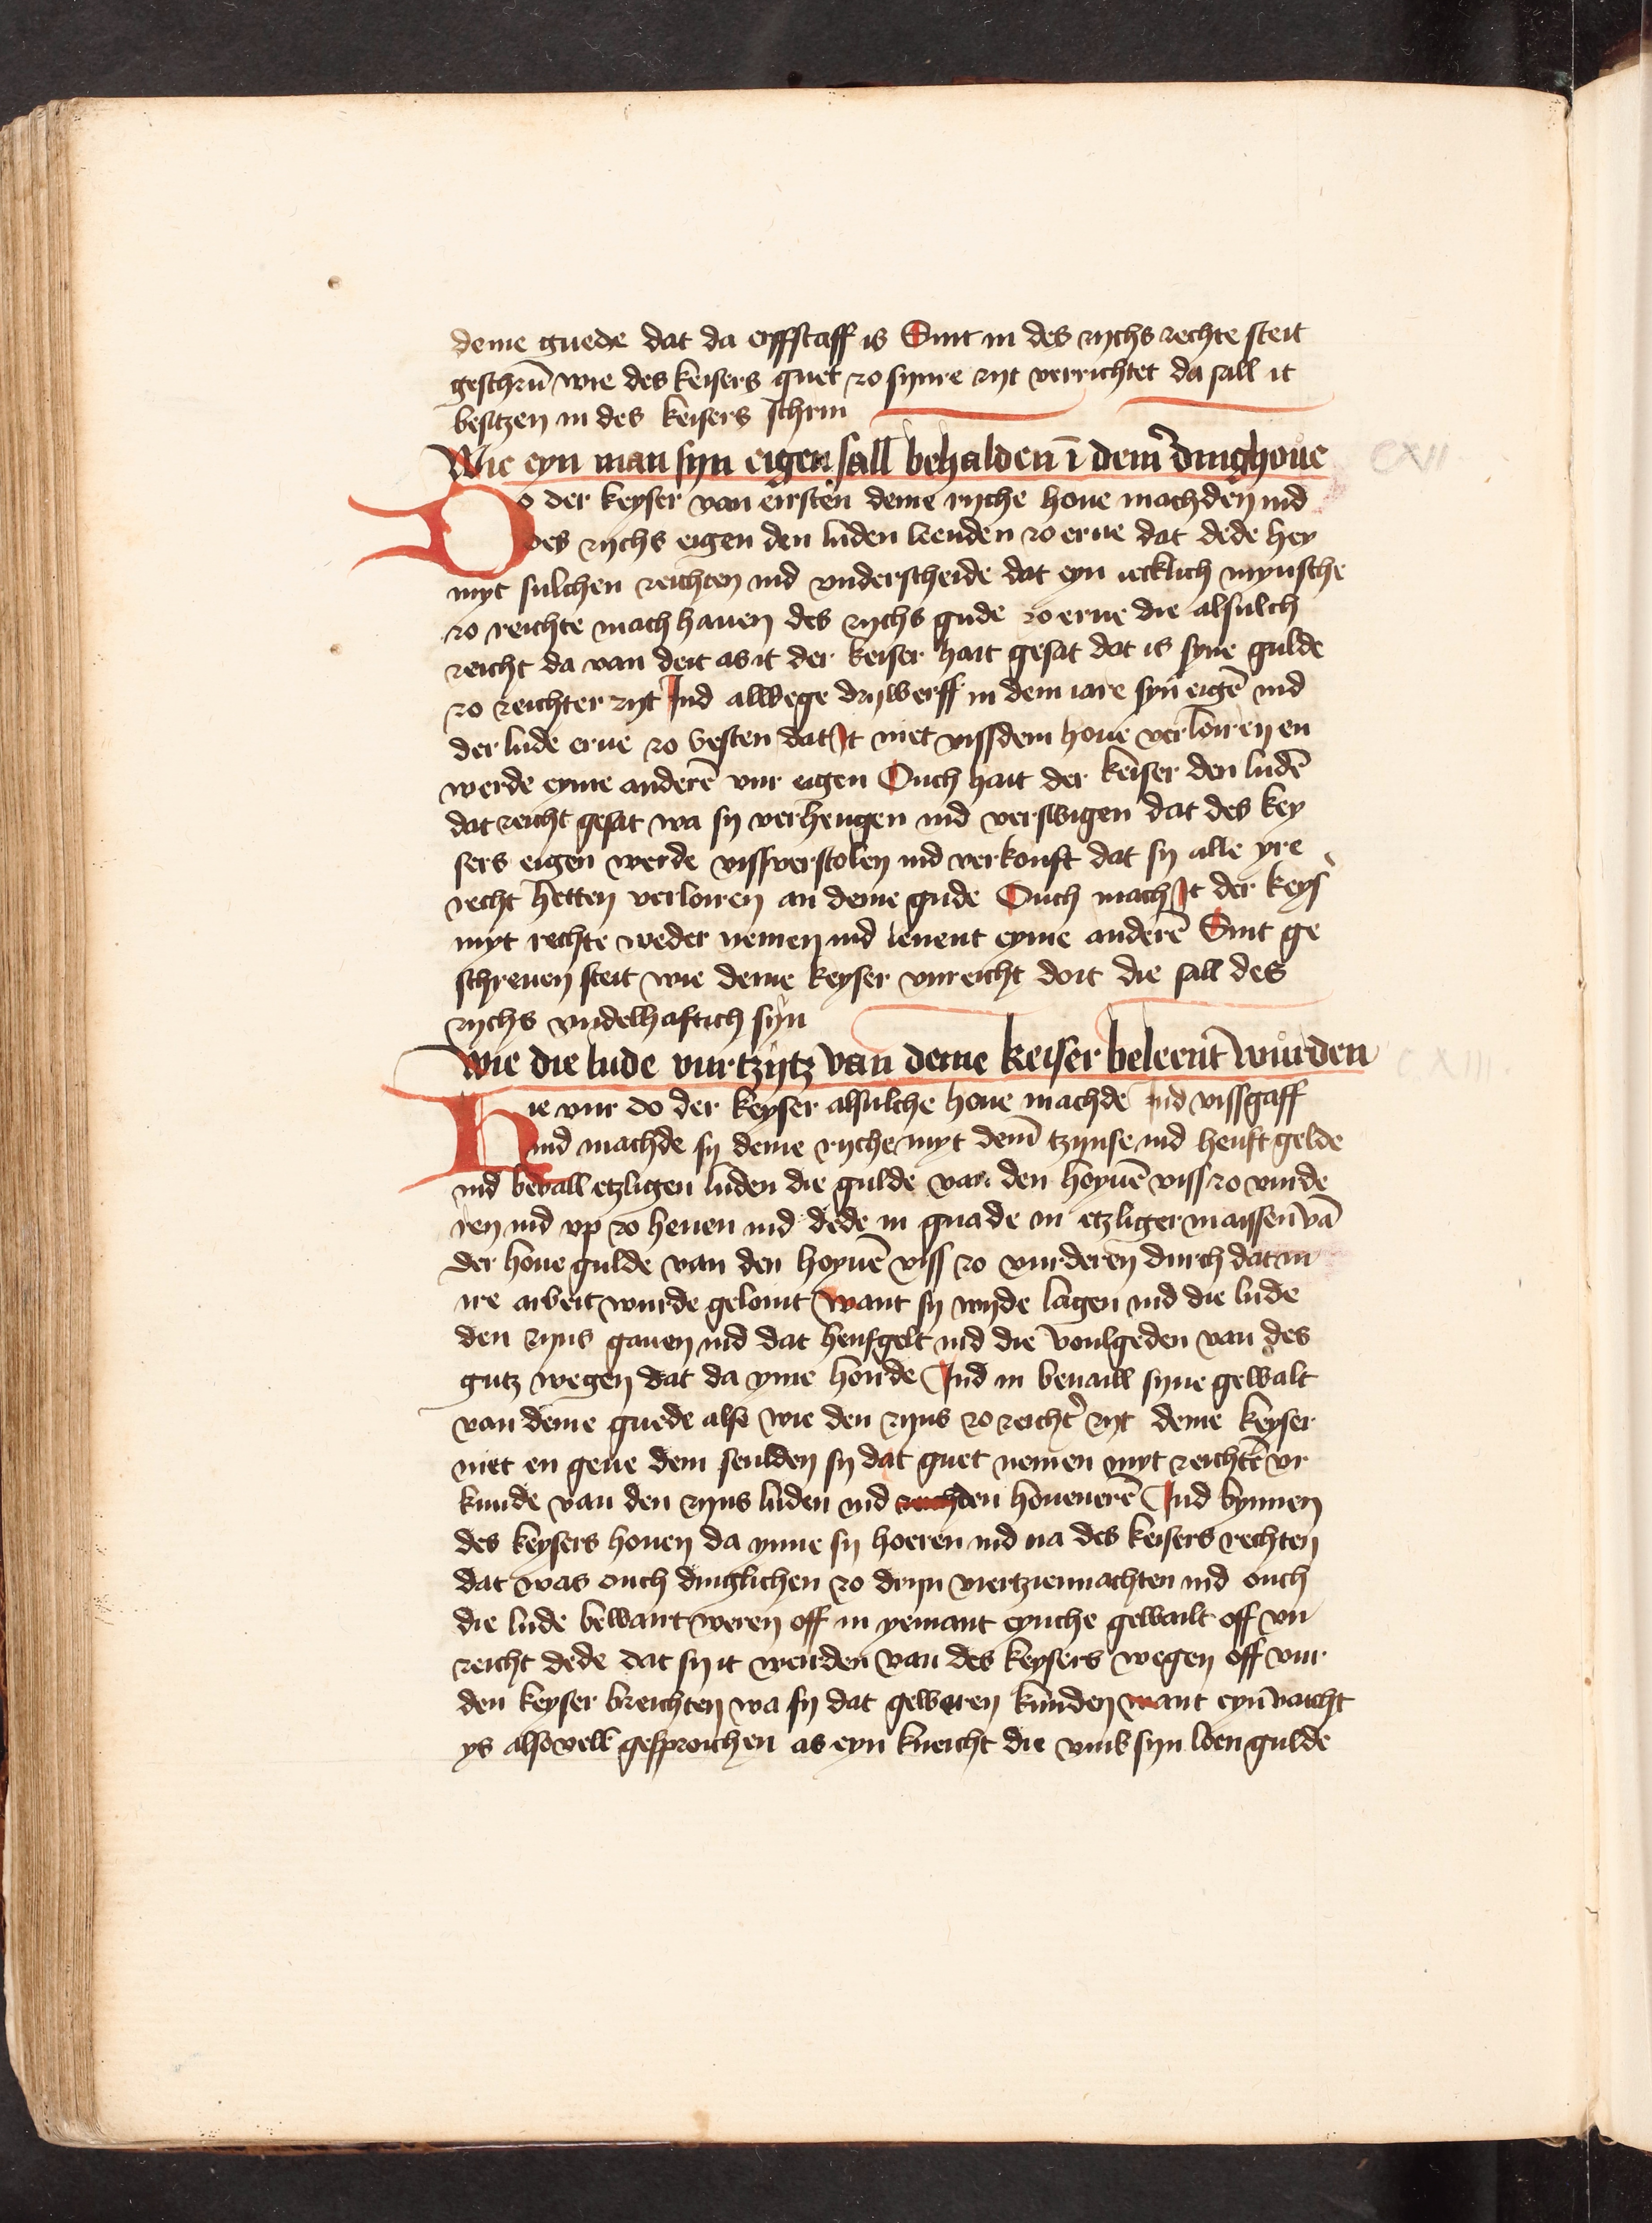 deme guede dat da erffstaff is Sint in des rychs rechte steit
geschrūn wie des keisers guet zo synre zyt verrichtet da sall it
besitzen in des keisers schrin
Wie eyn man syn eigen sall behalden ī dem dinghoue
CXII
Do der keyser van eirsten deme ryche houe machden ind
des rychs eigen den luden leenden zo erue dat dede hey
myt sulchen reichten ind vnderscheide dat eyn iecklich mynsche
zo reichte mach hauen des rychs gude zo erue die alsulch
reicht da van deit as it der keiser hait gesat dat is syne gulde
zo reichter zyt Ind allwege drywerff in dem iare syn eigē ind
der lude erue zo vesten dat It niet vissdem houe verloiren en
werde eyme anderē vur eigen Ouch hait der keiser den ludē
dat reicht gesat wa sy verhengen ind verswigen dat des key
sers eigen werde vissverstolen ind verkouft dat sy alle yre
recht hetten verloiren an deme gude Ouch mach It der keys
myt rechte weder nemen ind lenent eyme anderē Sint ge
schreuen steit wie deme keyser vnreicht doit die sall des
rychs vndelhaftich syn
Wie die lude vurtzytz van deme keiser beleent wurden
CXIII.
Hie vur do der keyser alsulche houe machde ind vissgaff
ind machde sy deme ryche myt dem tzynse ind heuft gelde
ind bevall etzligen luden die gulde van den hoyuē viss zo vurde
ren ind vp zo heuen ind dede in gnade in etzliger maissen vā
der houe gulde van den hoyuē viss zo vurderen durch dat in
ire arbeit wurde geloint want sy wyde lagen ind die lude
den zyns gauen ind dat heufgelt ind die voulgeden van des
gutz wegen dat da yme hoirde Ind in beuaill syne gewalt
van deme guede alse wie den zyns zo reicht' zyt deme keyser
niet en geue dem seulden sy dat guet nemen myt reichtē vr
kunde van den zyns luden ind den houenerē Ind bynnen
des keysers houen da ynne sy hoeren ind na des keisers rechten
dat was ouch dinglichen zo dryn viertziennachten ind ouch
die lude bewart weren off in yemant eynche gewailt off vn
reicht dede dat sy it wenden van des keysers wegen off vur
den keyser breichten wa sy dat geweren kunden want eyn vaicht
ys also vell gesproichen as eyn kneicht die vmb syn loen gulde